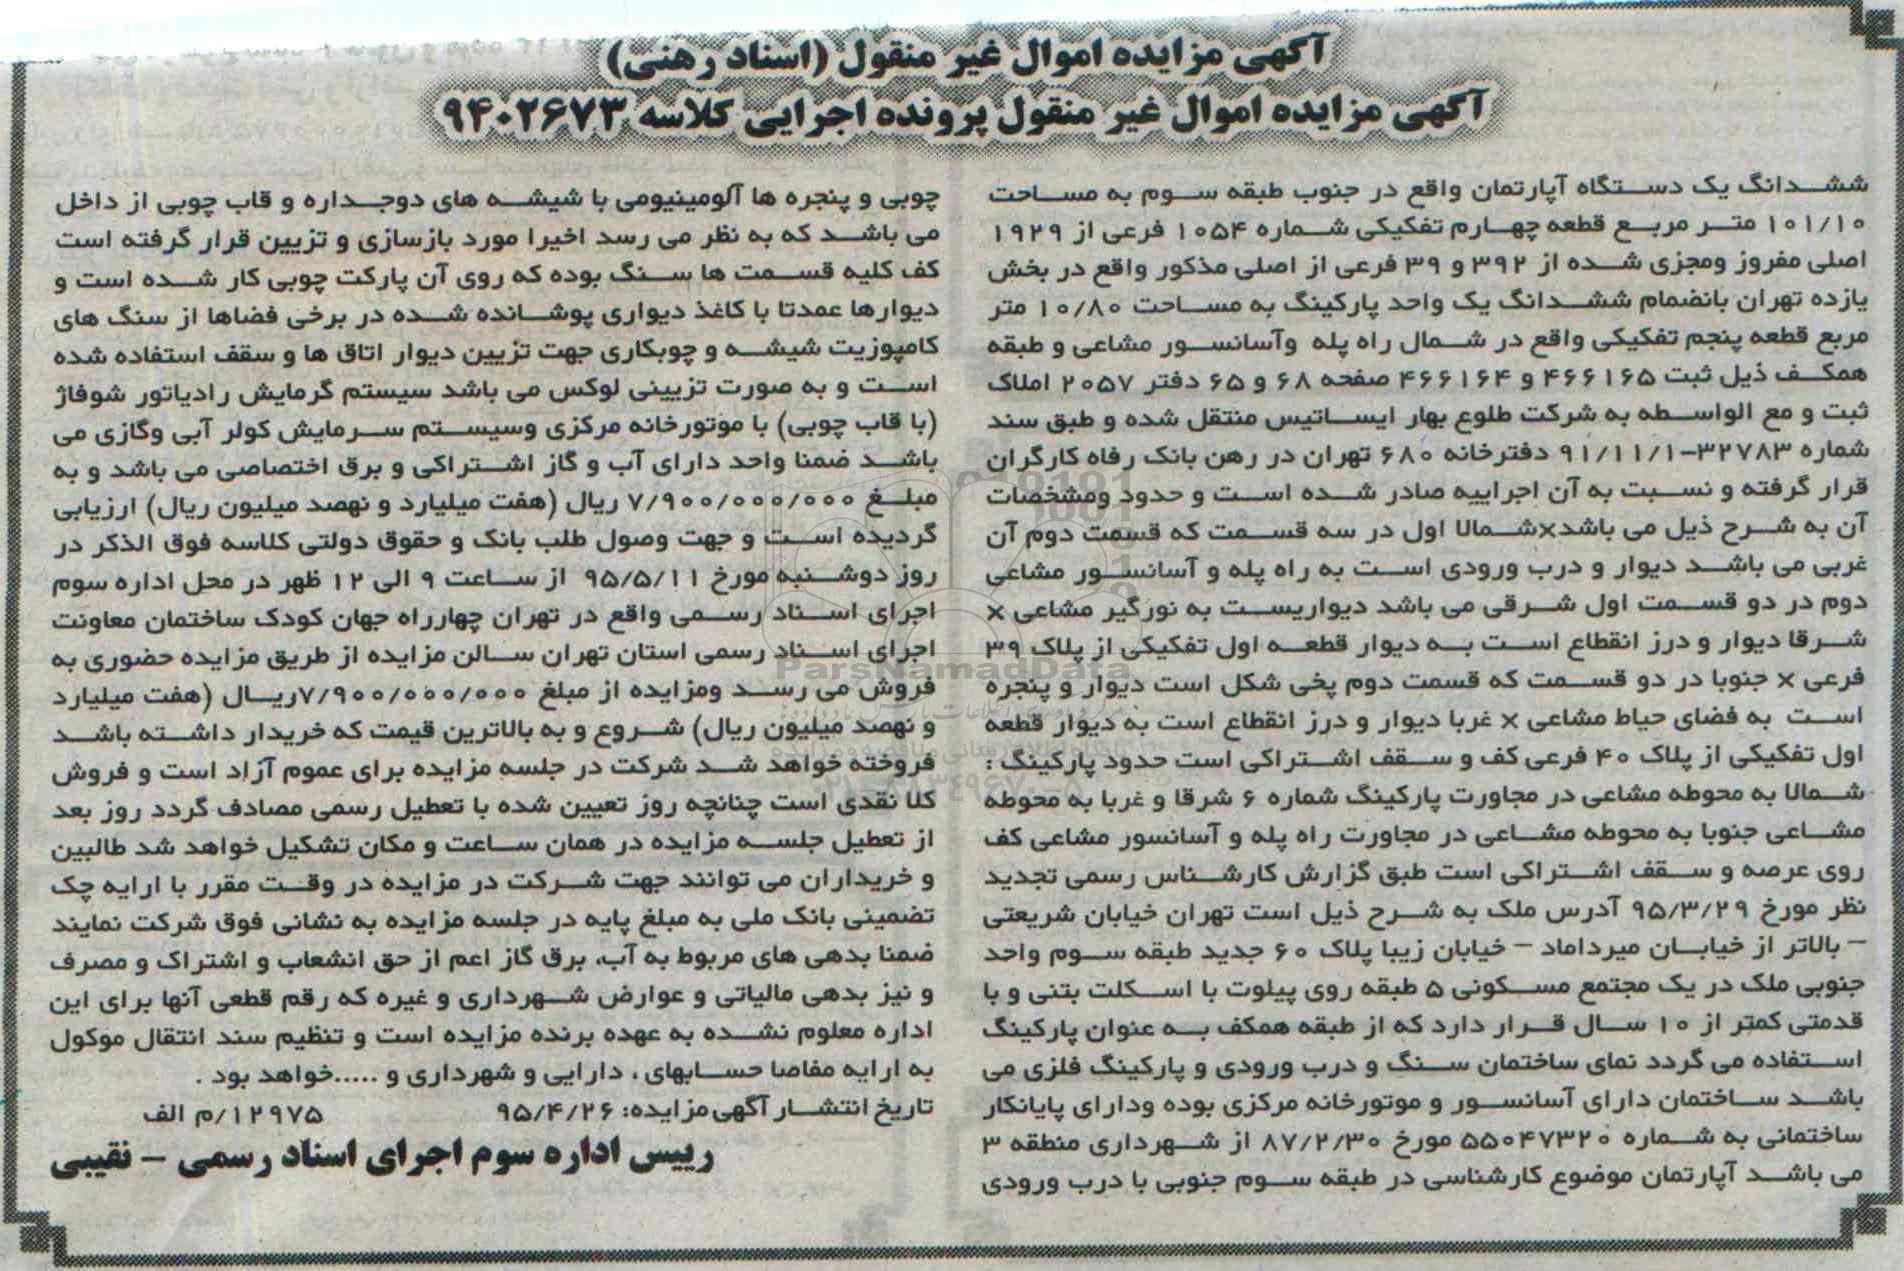 آگهی مزایده اموال غیر منقول (اسناد رهنی)
آگهی مزایده اموال غیر منقول پرونده اجرایی کلاسه ۹۴۰۲۶۷۳
ششدانگ یک دستگاه آپارتمان واقع در جنوب طبقه سوم به مساحت
۱۰۱/۱۰ متر مربع قطعه چهارم تفکیکی شماره ۱۰۵۴ فرعی از ۱۹۲۹
اصلی مفروز ومجزی شده از ۳۹۲ و ۳۹ فرعی از اصلی مذکور واقع در بخش
یازده تهران بانضمام ششدانگ یک واحد پارکینگ به مساحت ۱۰/۸۰ متر
مربع قطعه پنجم تفکیکی واقع در شمال راه پله وآسانسور مشاعی و طبقه
همکف ذیل ثبت ۴۶۶۱۶۵ و ۴۶۶۱۶۴ صفحه ۶۸ و ۶۵ دفتر ۲۰۵۷ املاک
ثبت و مع الواسطه به شرکت طلوع بهار ایساتیس منتقل شده و طبق سند
شماره ۳۲۷۸۳-۹۱/۱۱/۱ دفترخانه ۶۸۰ تهران در رهن بانک رفاه کارگران
قرار گرفته و نسبت به آن اجراییه صادر شده است و حدود ومشخصات
آن به شرح ذیل می باشد×شمالا اول در سه قسمت که قسمت دوم آن
غربی می باشد دیوار و درب ورودی است به راه پله و آسانسور مشاعی
دوم در دو قسمت اول شرقی می باشد دیواریست به نورگیر مشاعی ×
شرقا دیوار و درز انقطاع است به دیوار قطعه اول تفکیکی از پلاک ۳۹
فرعی × جنوبا در دو قسمت که قسمت دوم پخی شکل است دیوار و پنجره
است به فضای حیاط مشاعی × غربا دیوار و درز انقطاع است به دیوار قطعه
اول تفکیکی از پلاک ۴۰ فرعی کف و سقف اشتراکی است حدود پارکینگ :
شمالا به محوطه مشاعی در مجاورت پارکینگ شماره ۶ شرقا و غربا به محوطه
مشاعی جنوبا به محوطه مشاعی در مجاورت راه پله و آسانسور مشاعی کف
روی عرصه و سقف اشتراکی است طبق گزارش کارشناس رسمی تجدید
نظر مورخ ۹۵/۳/۲۹ آدرس ملک به شرح ذیل است تهران خیابان شریعتی
– بالاتر از خیابان میرداماد – خیابان زیبا پلاک ۶۰ جدید طبقه سوم واحد
جنوبی ملک در یک مجتمع مسکونی ۵ طبقه روی پیلوت با اسکلت بتنی و با
قدمتی کمتر از ۱۰ سال قرار دارد که از طبقه همکف به عنوان پارکینگ
استفاده می گردد نمای ساختمان سنگ و درب ورودی و پارکینگ فلزی می
باشد ساختمان دارای آسانسور و موتورخانه مرکزی بوده ودارای پایانکار
ساختمانی به شماره ۵۵۰۴۷۳۲۰ مورخ ۸۷/۲/۳۰ از شهرداری منطقه ۳
می باشد آپارتمان موضوع کارشناسی در طبقه سوم جنوبی با درب ورودی
چوبی و پنجره ها آلومینیومی با شیشه های دوجداره و قاب چوبی از داخل
می باشد که به نظر می رسد اخیرا مورد بازسازی و تزیین قرار گرفته است
کف کلیه قسمت ها سنگ بوده که روی آن پارکت چوبی کار شده است و
دیوارها عمدتا با کاغذ دیواری پوشانده شده در برخی فضاها از سنگ های
کامپوزیت شیشه و چوبکاری جهت تزیین دیوار اتاق ها و سقف استفاده شده
است و به صورت تزیینی لوکس می باشد سیستم گرمایش رادیاتور شوفاژ
(با قاب چوبی) با موتورخانه مرکزی وسیستم سرمایش کولر آبی وگازی می
باشد ضمنا واحد دارای آب و گاز اشتراکی و برق اختصاصی می باشد و به
مبلغ ۷/۹۰۰/۰۰۰/۰۰۰ ریال (هفت میلیارد و نهصد میلیون ریال) ارزیابی
گردیده است و جهت وصول طلب بانک و حقوق دولتی کلاسه فوق الذکر در
روز دوشنبه مورخ ۹۵/۵/۱۱ از ساعت ۹ الی ۱۲ ظهر در محل اداره سوم
اجرای اسناد رسمی واقع در تهران چهارراه جهان کودک ساختمان معاونت
اجرای اسناد رسمی استان تهران سالن مزایده از طریق مزایده حضوری به
فروش می رسد ومزایده از مبلغ ۷/۹۰۰/۰۰۰/۰۰۰ریال (هفت میلیارد
و نهصد میلیون ریال) شروع و به بالاترین قیمت که خریدار داشته باشد
فروخته خواهد شد شرکت در جلسه مزایده برای عموم آزاد است و فروش
کلا نقدی است چنانچه روز تعیین شده با تعطیل رسمی مصادف گردد روز بعد
از تعطیل جلسه مزایده در همان ساعت و مکان تشکیل خواهد شد طالبین
و خریداران می توانند جهت شرکت در مزایده در وقت مقرر با ارایه چک
تضمینی بانک ملی به مبلغ پایه در جلسه مزایده به نشانی فوق شرکت نمایند
ضمنا بدهی های مربوط به آب، برق گاز اعم از حق انشعاب و اشتراک و مصرف
و نیز بدهی مالیاتی و عوارض شهرداری و غیره که رقم قطعی آنها برای این
اداره معلوم نشده به عهده برنده مزایده است و تنظیم سند انتقال موکول
به ارایه مفاصا حسابهای ، دارایی و شهرداری و .....خواهد بود .
تاریخ انتشار آگهی مزایده: ۹۵/۴/۲۶ ۱۲۹۷۵/م الف
رییس اداره سوم اجرای اسناد رسمی – نقیبی
ParsNamadData